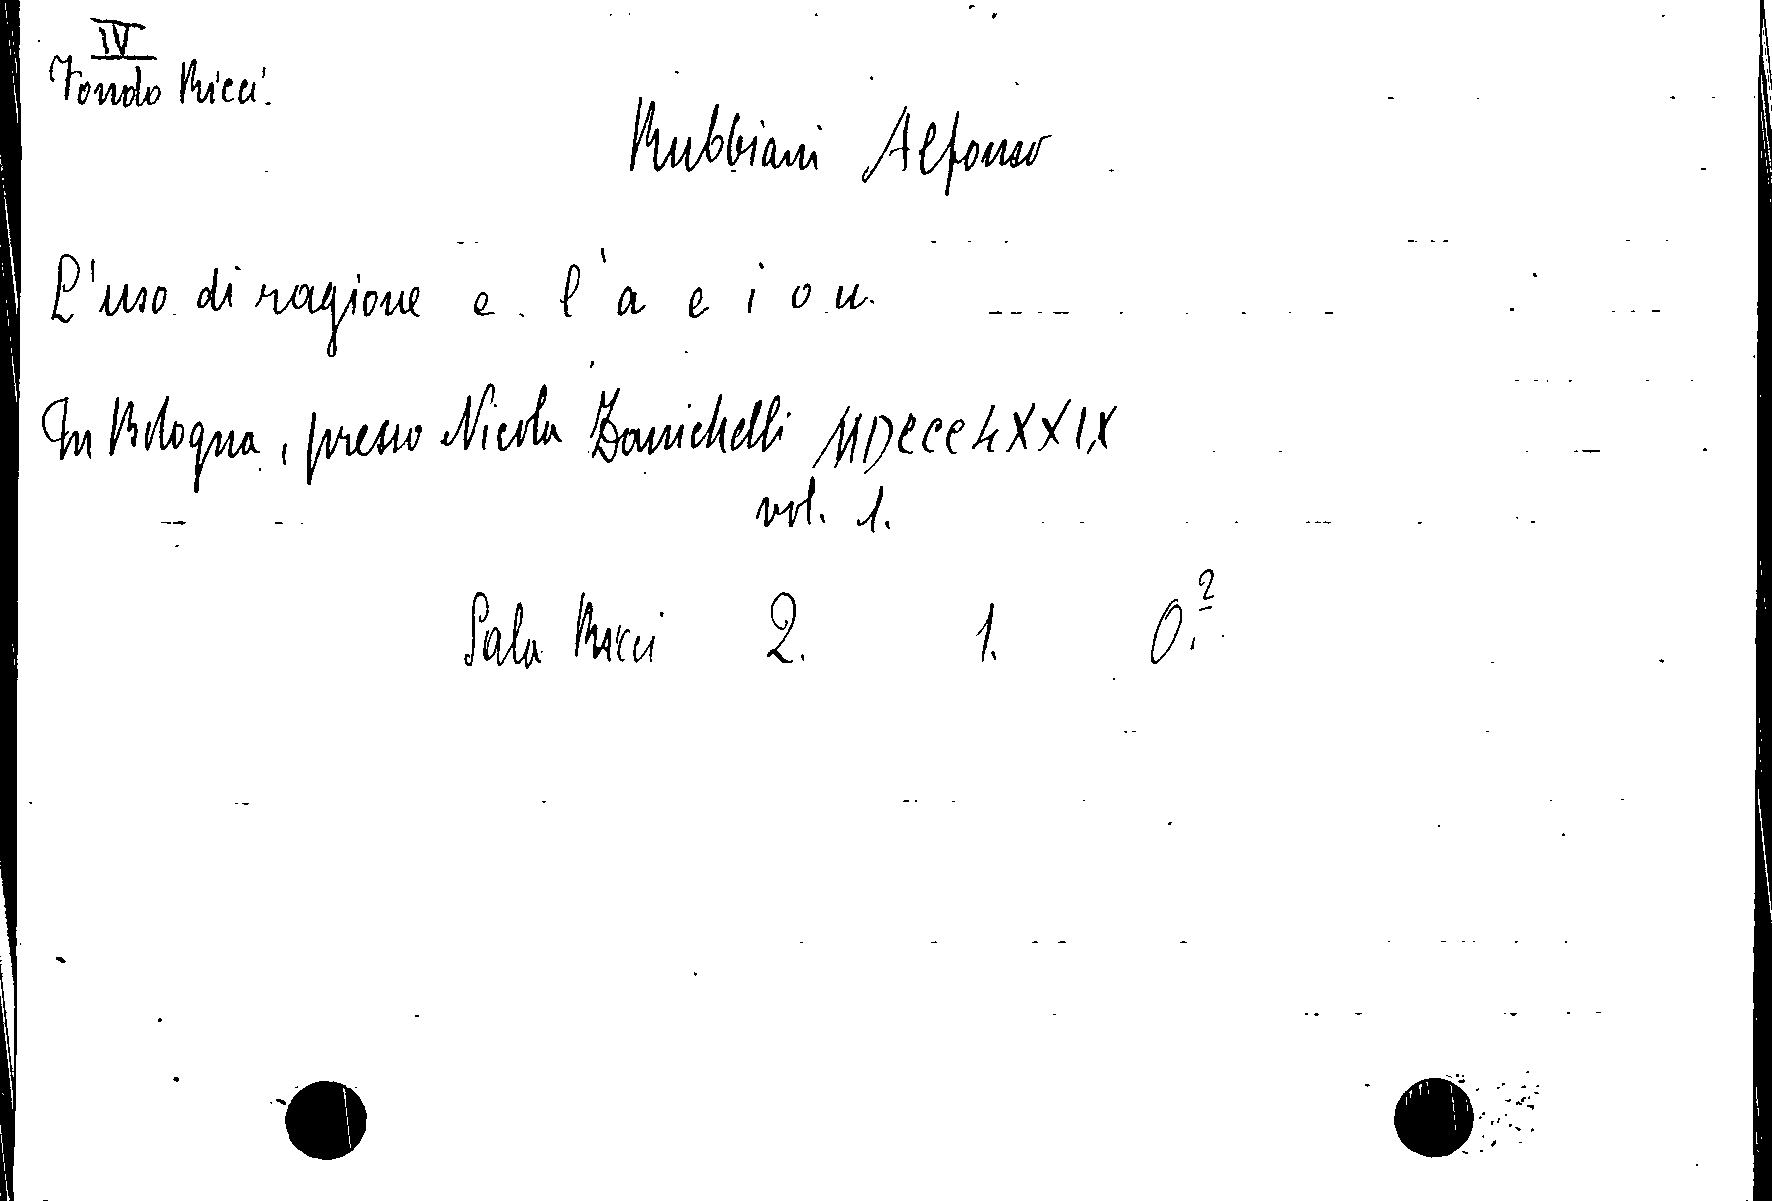 IV
Fondo Ricci.
Rubbiani Alfonso
L'uso di ragione e l'a e i o u.
In Bologna, presso Nicola Zanichelli MDCCCLXXIX
vol. 1.
Sala Ricci 2. 1. O.2